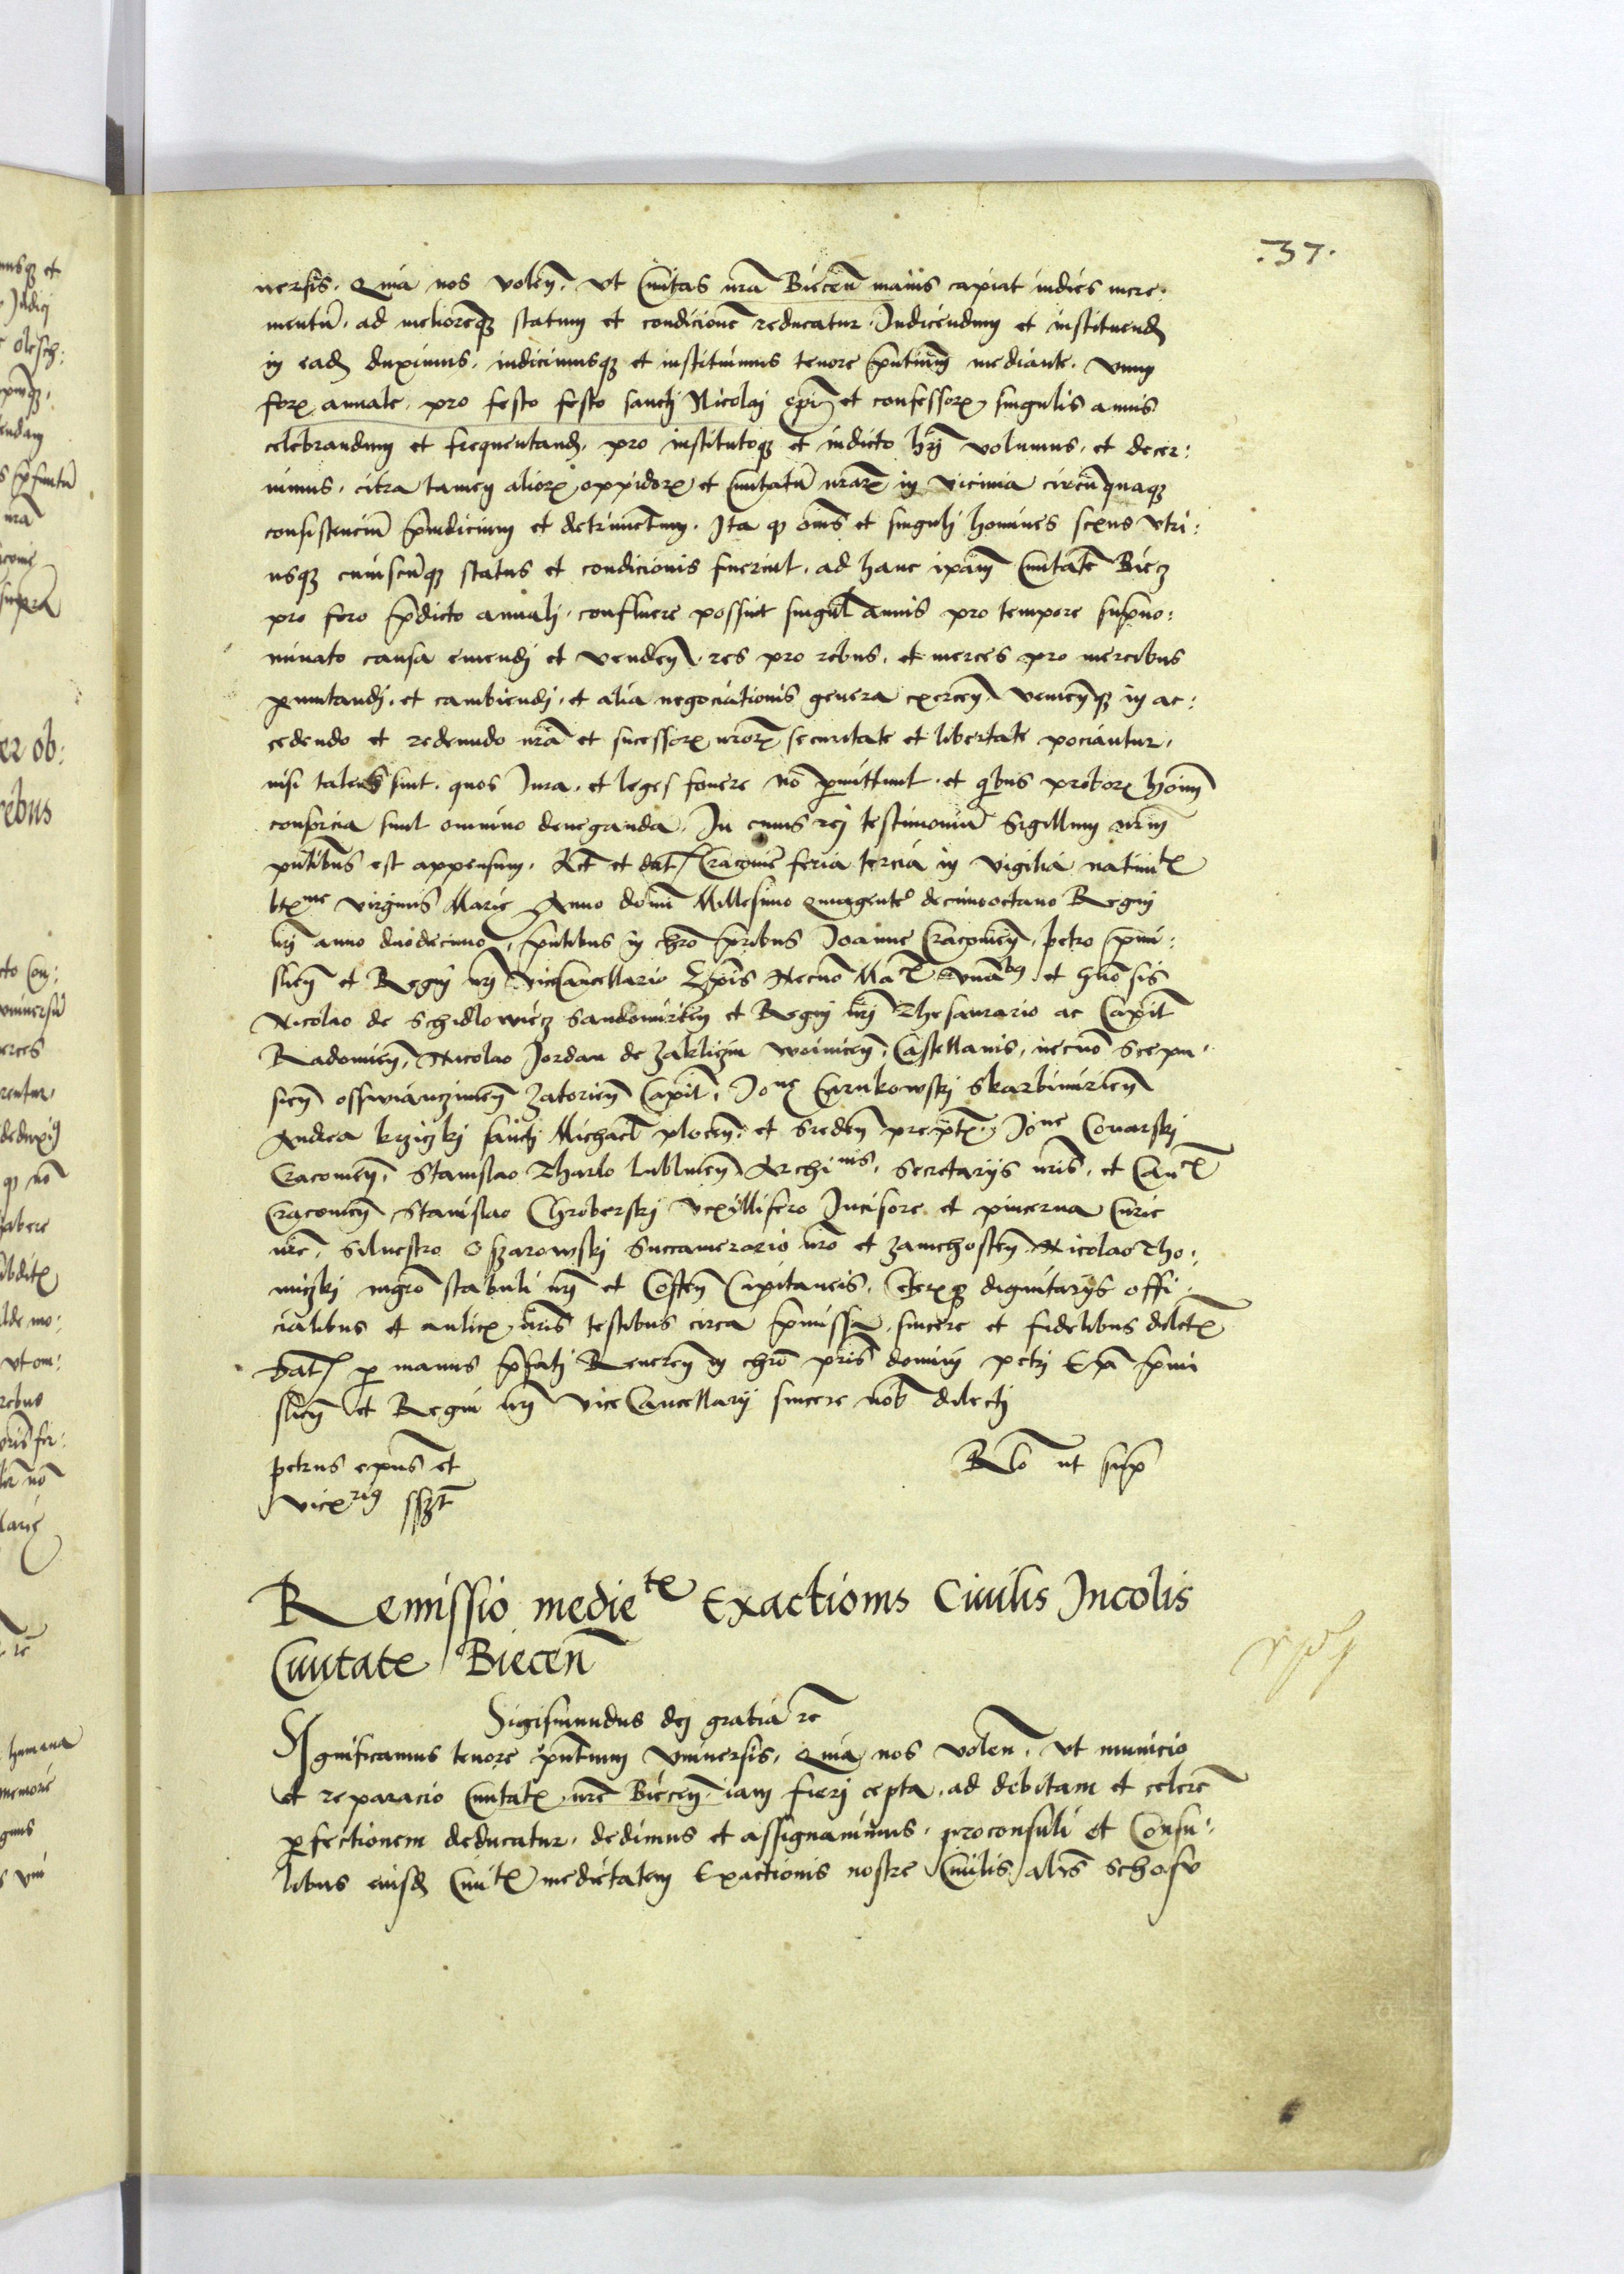 .37.
uersis. Quia nos volen̄. vt Ciuitas nr̄a Biecen̄ maius capiat indies incre:
mentū. ad melioremq̨ statum et condicionē reducatur. Indicendum et instituend̄
in ead̄ duximus. indicimusq̨ et instituimus tenore pn̄tium mediante. vnum
forꝝ annale pro festo festo sancti Nicolai ep̄i et confessorꝝ singulis annis
celebrandum et frequentand̄. pro institutoq̨ et indicto hr̄i volumus. et decer:
nimus. citra tamen aliorꝝ oppidorꝝ et Ciuitatū nr̄arꝝ in vicinia circūquaq̨
consistenciū p̄iudicium et detrimentum. Ita q̨ om̄s et singuli homines sexus vtri:
usq̨ cuiuscūq̨ status et condicionis fuerint. ad hanc ip̄am Ciuitatē Biecz
pro foro p̄dicto annali. confluere possint singul̄ annis pro tempore sup̄no:
minato causa emendi et venden̄. res pro rebus. et merces pro mercibus
ꝑmutandi. et cambiendi. et alia negociationis genera exercen̄ venienq̨ in ac:
cedendo et redeundo nr̄a et sucessorꝝ nr̄orꝝ securitate et libertate pociantur.
nisi tales sint. quos Iura. et leges fouere nō ꝑmittunt. et qibus proborꝝ hoīm
consorcia sunt omnino deneganda. In cuius rei testimoniū Sigillum nr̄m
pn̄tibus est appensum. Act̄ et dat̄ Cracouie feria tercia in vigilia natiuitꝭ
btꝭme virginis Marie Anno domī Millesimo quigente° decimooctauo Regni
nr̄i anno duodecimo, pn̄tibus in chrō p̄ribus Joanne Cracouien̄, petro p̄mi:
slien̄ et Regni nr̄i viceCancellario Ep̄is Necnō et
Nicolao de Schidlowiecz Sandomirien̄ et Regni nr̄i Thesaurario ac Capit̄
Radomien̄, Nicolao Jordan de Zakliczin woinicen̄, Castellanis, necnō Scepu:
sien̄ osswianczimen̄ Zatorien̄ Capit̄, Jone Carnkowski Skarbimirien̄
Andrea krziczki sancti Michael̄ plocen̄: et Sreden̄ prep̄tꝭ, Jone Conarski
Cracouien̄, Stanislao Tharlo lublinen̄ Archinis, Secretarijs nr̄is, et Can̄
Cracouien̄ Stanislao Chroberski vexillifero Incisore et pincerna Curie
nr̄e, Siluestro Oszarowski Succamerario nr̄o et Zawichosten̄ Nicolao Tho:
miczki mgr̄o stabuli nr̄i et Costen̄ Capitaneis, Ceterꝭq̨ dignitarijs offi:
cialibus et aulicꝭ nr̄is testibus circa p̄missa. sincere et fidelibus dilectꝭ
Dat̄ ꝑ manus p̄fati Reueren̄ in chrō p̄ris domini petri Ep̄i p̄mi
slien̄ et Regni nr̄i viceCancellarij sincere nob̄ dilecti
petrus ep̄us et
Rl̄o ut sup̄
vicꝭrig sszt̄
Remissio medietꝭ Exactionis Ciuilis Incolis
Ciuitatꝭ Biecen̄
Sigismundus dei gratia rē
Significamus tenore pn̄tium vniuersis, Quia nos volen̄. vt municio
et reparacio Ciuitatꝭ nr̄e Biecen̄ iam fieri cepta. ad debitam et celerē
ꝑfectionem deducatur. dedimus et assignauimus. proconsuli et Consu:
libus eiusd̄ Ciuitꝭ medietatem Exactionis nostre Ciuilis al̄s schosv